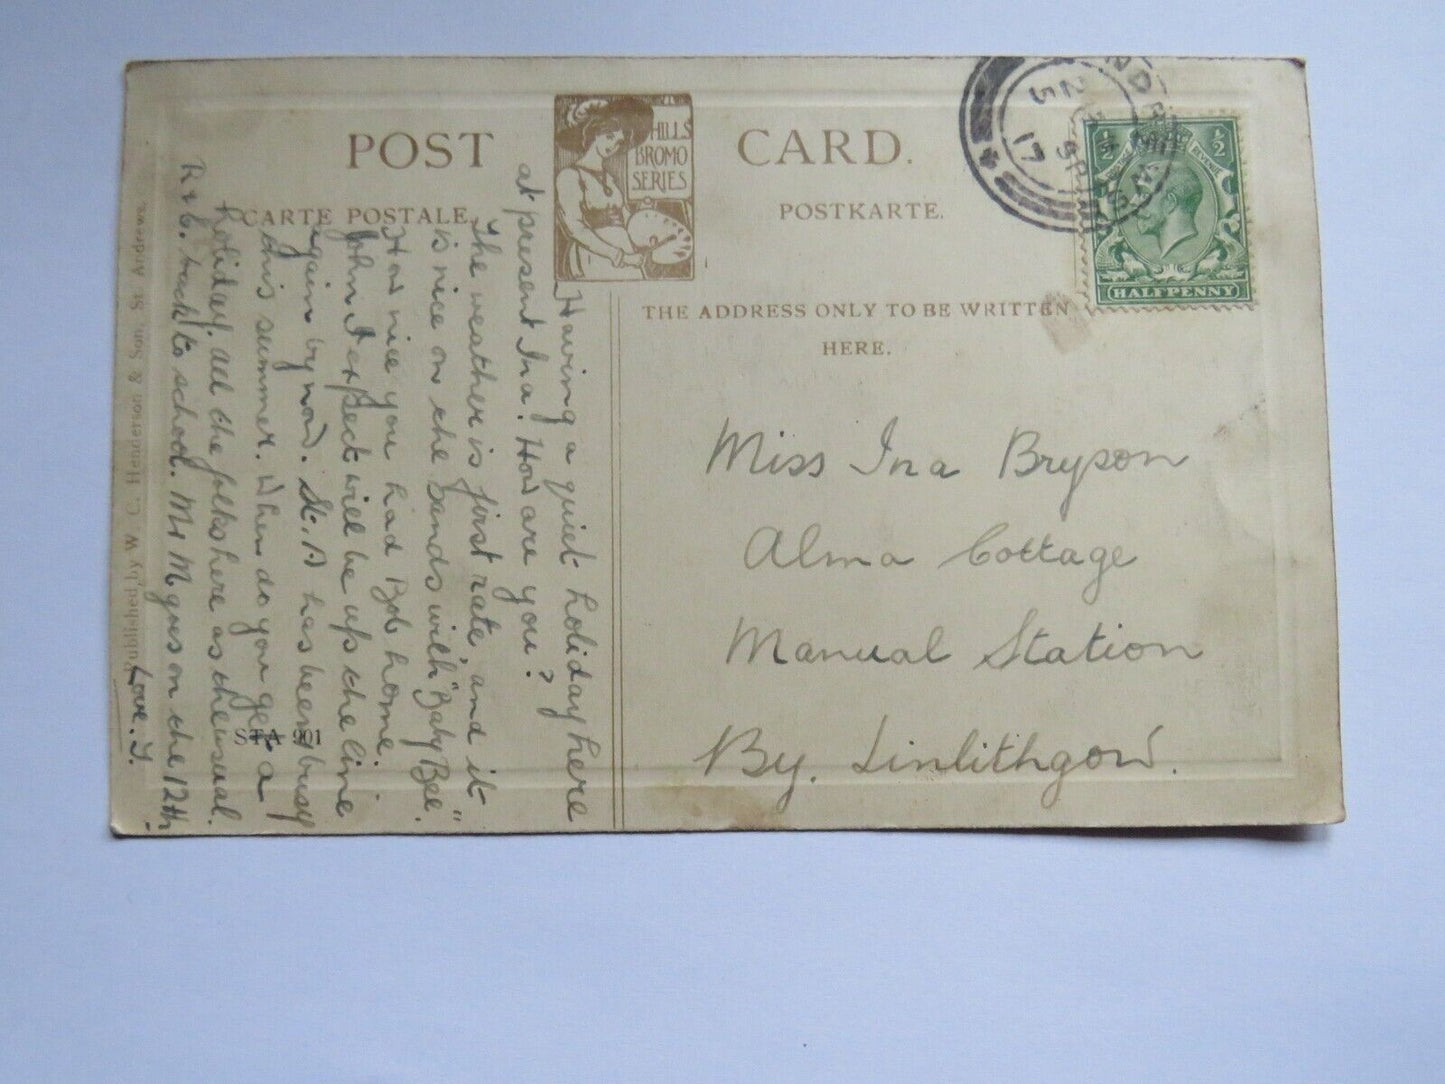 POST CARD.
HILLS
BROMO
SERIES
CARTE POSTALE.
POSTKARTE.
THE ADDRESS ONLY TO BE WRITTEN
HERE.
½ ½
HALFPENNY
17
Having a quiet holiday here
at present Ina. How are you?
The weather is first rate, and it
is nice on the sands with "Baby Bee."
How nice you had Bob home.
John I expect will be up the line
again by now. St. A has been busy
this summer. When do you get a
holiday. All the folks here as the usual.
R & C. back to school. Mr M goes on the 12th.
Love. J.
Miss Ina Bryson
Alma Cottage
Manual Station
By. Linlithgow.
STA 901
Published by W. C. Henderson & Son, St. Andrews.